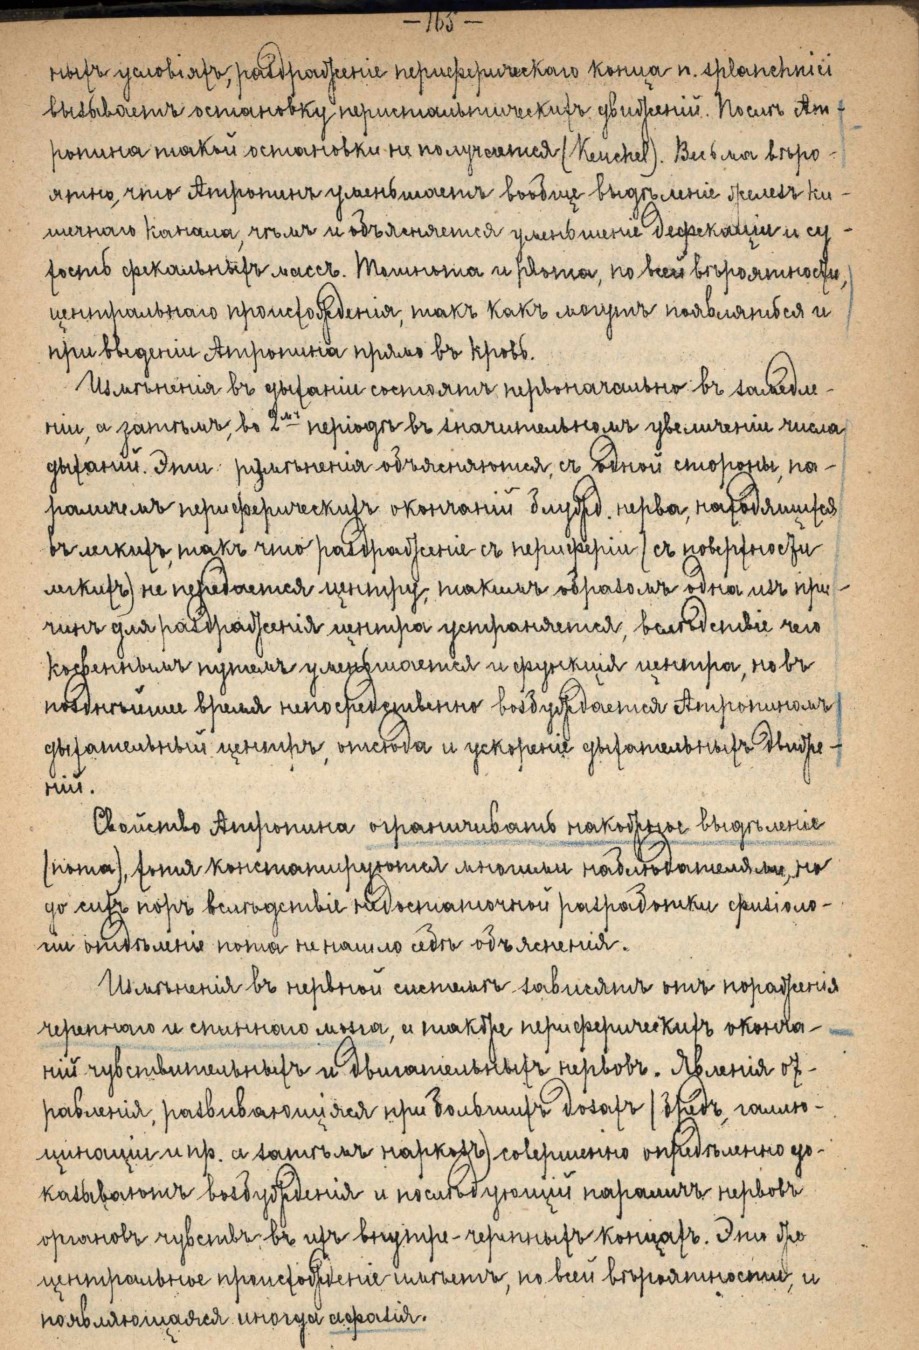 — 165 —
ныхъ условіяхъ, раздраженіе периферическаго конца n. splanchnici
вызываетъ остановку перистальтическихъ движеній. Послѣ Ат-
ропина такой остановки не получается (Keuchel). Весьма вѣро-
ятно, что Атропинъ уменьшаетъ вообще выдѣленіе железъ ки-
шечнаго канала, чѣмъ и объясняется уменьшеніе дефекаціи и су-
хость фекальныхъ массъ. Тошнота и рвота, по всей вѣроятности,
центральнаго происхожденія, такъ какъ могутъ появляться и
при введеніи Атропина прямо въ кровь.
Измѣненія въ дыханіи состоятъ первоначально въ замедле-
ніи, а затѣмъ, во 2мъ періодѣ въ значительномъ увеличеніи числа
дыханий. Эти измѣненія объясняются, съ одной стороны, па-
раличемъ периферическихъ окончаній блужд. нерва, находящихся
въ легкихъ, такъ что раздраженіе съ периферіи (съ поверхности
легкихъ) не передается центру, такимъ образомъ одна изъ при-
чинъ для раздраженія центра устраняется, вслѣдствіе чего
косвеннымъ путемъ уменьшается и функція центра, но въ
позднѣйшее время непосредственно возбуждается Атропиномъ
дыхательный центръ, отсюда и ускореніе дыхательныхъ движе-
ній.
Свойство Атропина ограничивать накожное выдѣленіе
(пота), хотя констатируются многими наблюдателями, но
до сихъ поръ вслѣдствіе недостаточной разработки физіоло-
гіи отдѣленіе пота не нашло себѣ объясненія.
Измѣненія въ нервной системѣ зависятъ отъ пораженія
черепнаго и спиннаго мозга, а также периферическихъ оконча-
ній чувствительныхъ и двигательныхъ нервовъ. Явленія от-
равленія, развивающіяся при большихъ дозахъ (бредъ, галлю-
цинаціи и пр. а затѣмъ наркозъ) совершенно опредѣленно до-
казываютъ возбужденія и послѣдующій параличъ нервовъ
органовъ чувствъ въ ихъ внутре-черепныхъ концахъ. Это же
центральное происхожденіе имѣетъ, по всей вѣроятности, и
появляющаяся иногда афазія.